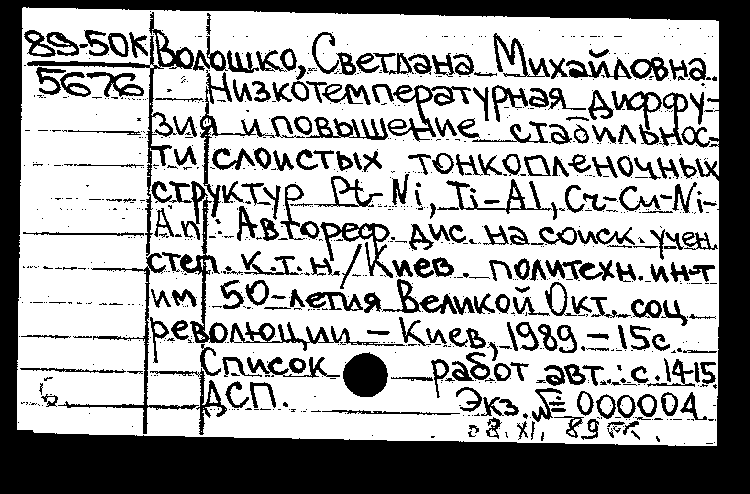 89-50К
5676
Волошко, Светлана Михайловна.
Низкотемпературная диффу-
зия и повышение стабильнос-
ти слоистых тонкопленочных
структур Pt-Ni, Ti-Al, Cr-Cu-Ni-
Ап: Автореф. дис. на соиск. учен.
степ. к.т.н. / Киев. политехн. ин-т
им 50-летия Великой Окт. соц.
революции – Киев, 1989. – 15с.
Список работ авт.: с. 14-15
ДСП. Экз. № 000004.
б.
08. XI. 89